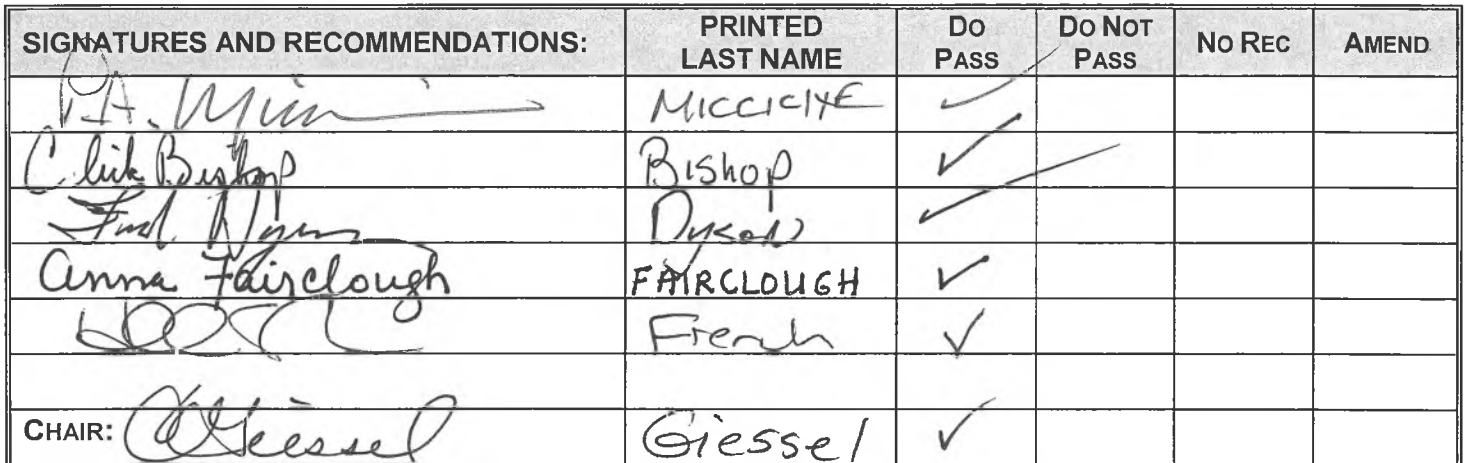 SIGNATURES AND RECOMMENDATIONS: PRINTED LAST NAME DO PASS DO NOT PASS NO REC AMEND
P.A. MICCICHE ✓
Click Bishop Bishop ✓
Fred Dyson Dyson ✓
Anna Fairclough FAIRCLOUGH ✓
French ✓
CHAIR: CGiessel Giessel ✓